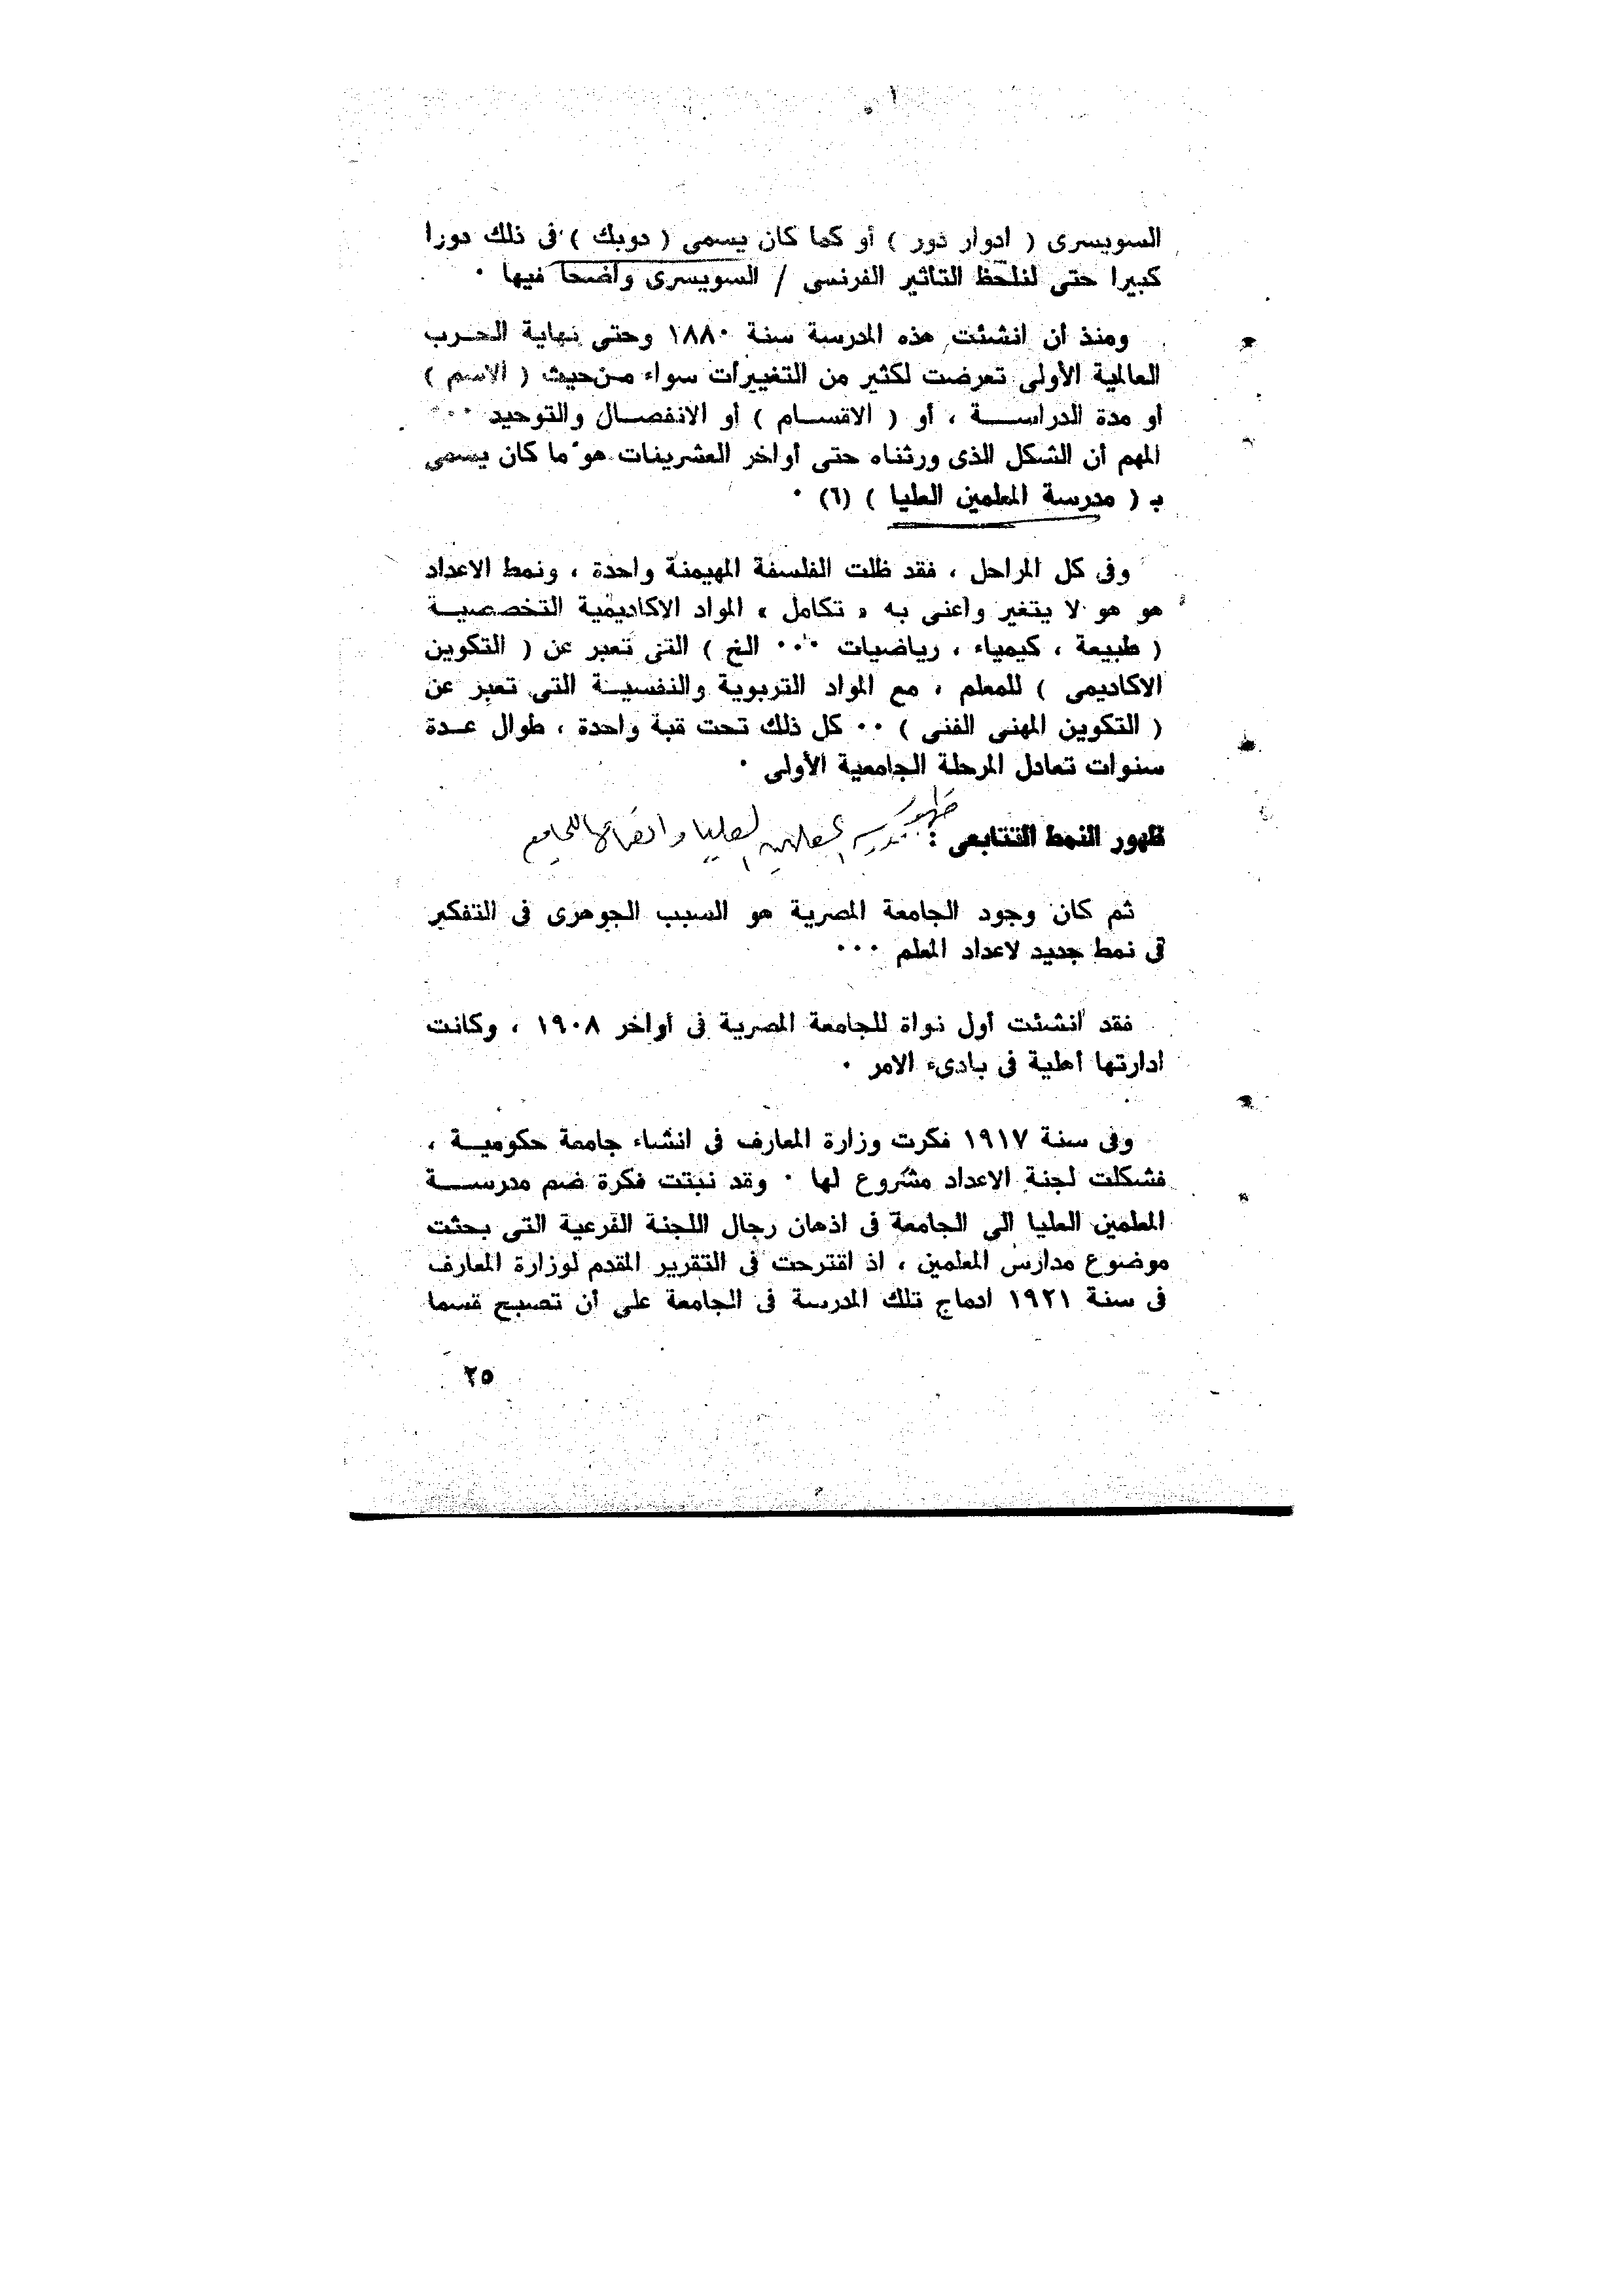 السويسرى ( ادوار دور ) أو كما كان يسمى ( دوبك ) فى ذلك دورا
كبيرا حتى لنلحظ التأثير الفرنسى / السويسرى واضحا فيها ٠
ومنذ أن انشئت هذه المدرسة سنة ١٨٨٠ وحتى نهاية الحـرب
العالمية الأولى تعرضت لكثير من التغييرات سواء من حيث ( الاسم )
أو مدة الدراســـة ، أو ( الاقســام ) أو الانفصــال والتوحيد ٠٠٠
المهم أن الشكل الذى ورثناه حتى أواخر العشرينات هو ما كان يسمى
بـ ( مدرسة المعلمين العليا ) (٦) ٠
وفى كل المراحل ، فقد ظلت الفلسفة المهيمنة واحدة ، ونمط الاعداد
هو هو لا يتغير واعنى به « تكامل » المواد الاكاديمية التخصصيــة
( طبيعة ، كيمياء ، رياضيات ٠٠٠ الخ ) التى تعبر عن ( التكوين
الاكاديمى ) للمعلم ، مع المواد التربوية والنفسيــة التى تعبر عن
( التكوين المهنى الفنى ) ٠٠ كل ذلك تحت قبة واحدة ، طوال عـدة
سنوات تعادل المرحلة الجامعية الأولى ٠
ظهور النمط التتابعى : ظهور مدرسة المعلمين العليا وانضمامها للجامعة
ثم كان وجود الجامعة المصرية هو السبب الجوهرى فى التفكير
فى نمط جديد لاعداد المعلم ٠٠٠
فقد انشئت أول نواة للجامعة المصرية فى أواخر ١٩٠٨ ، وكانت
ادارتها أهلية فى بادىء الامر ٠
وفى سنة ١٩١٧ فكرت وزارة المعارف فى انشاء جامعة حكوميــة ،
فشكلت لجنة الاعداد مشروع لها ٠ وقد نبتت فكرة ضم مدرســـة
المعلمين العليا الى الجامعة فى اذهان رجال اللجنة الفرعية التى بحثت
موضوع مدارس المعلمين ، اذ اقترحت فى التقرير المقدم لوزارة المعارف
فى سنة ١٩٢١ ادماج تلك المدرسة فى الجامعة على أن تصبح قسما
٢٥